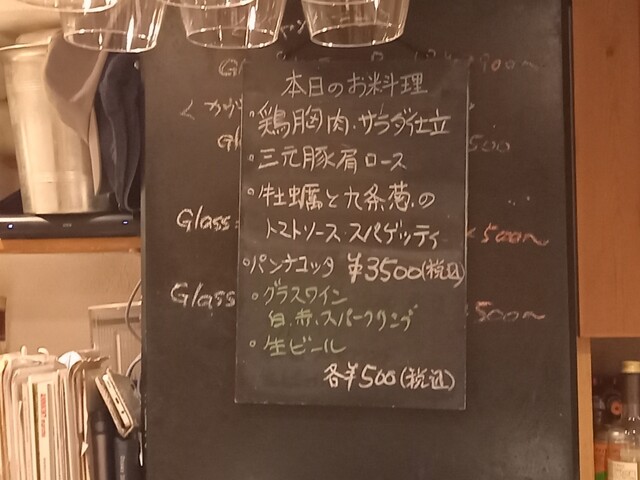 本日のお料理
・鶏胸肉.サラダ仕立
・三元豚肩ロース
・牡蠣と九条葱の
トマトソース.スパゲッティ
・パンナコッタ ¥3500(税込)
・グラスワイン
白.赤.スパークリング
・生ビール
各¥500(税込)
Glass
500〜
Glass
500〜